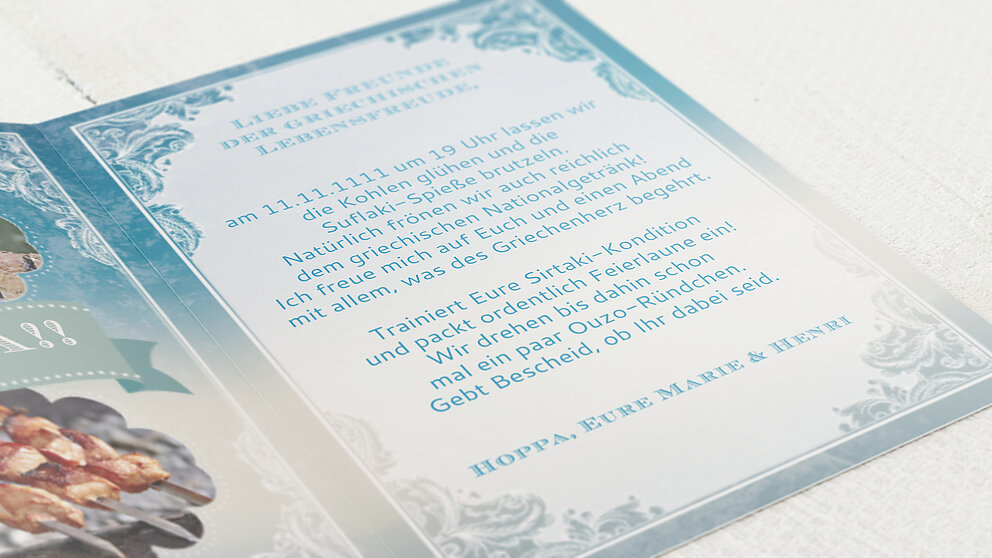 A!!
LIEBE FREUNDE
DER GRIECHISCHEN
LEBENSFREUDE,
am 11.11.1111 um 19 Uhr lassen wir
die Kohlen glühen und die
Suflaki-Spieße brutzeln.
Natürlich frönen wir auch reichlich
dem griechischen Nationalgetränk!
Ich freue mich auf Euch und einen Abend
mit allem, was des Griechenherz begehrt.
Trainiert Eure Sirtaki-Kondition
und packt ordentlich Feierlaune ein!
Wir drehen bis dahin schon
mal ein paar Ouzo-Ründchen.
Gebt Bescheid, ob Ihr dabei seid.
HOPPA, EURE MARIE & HENRI